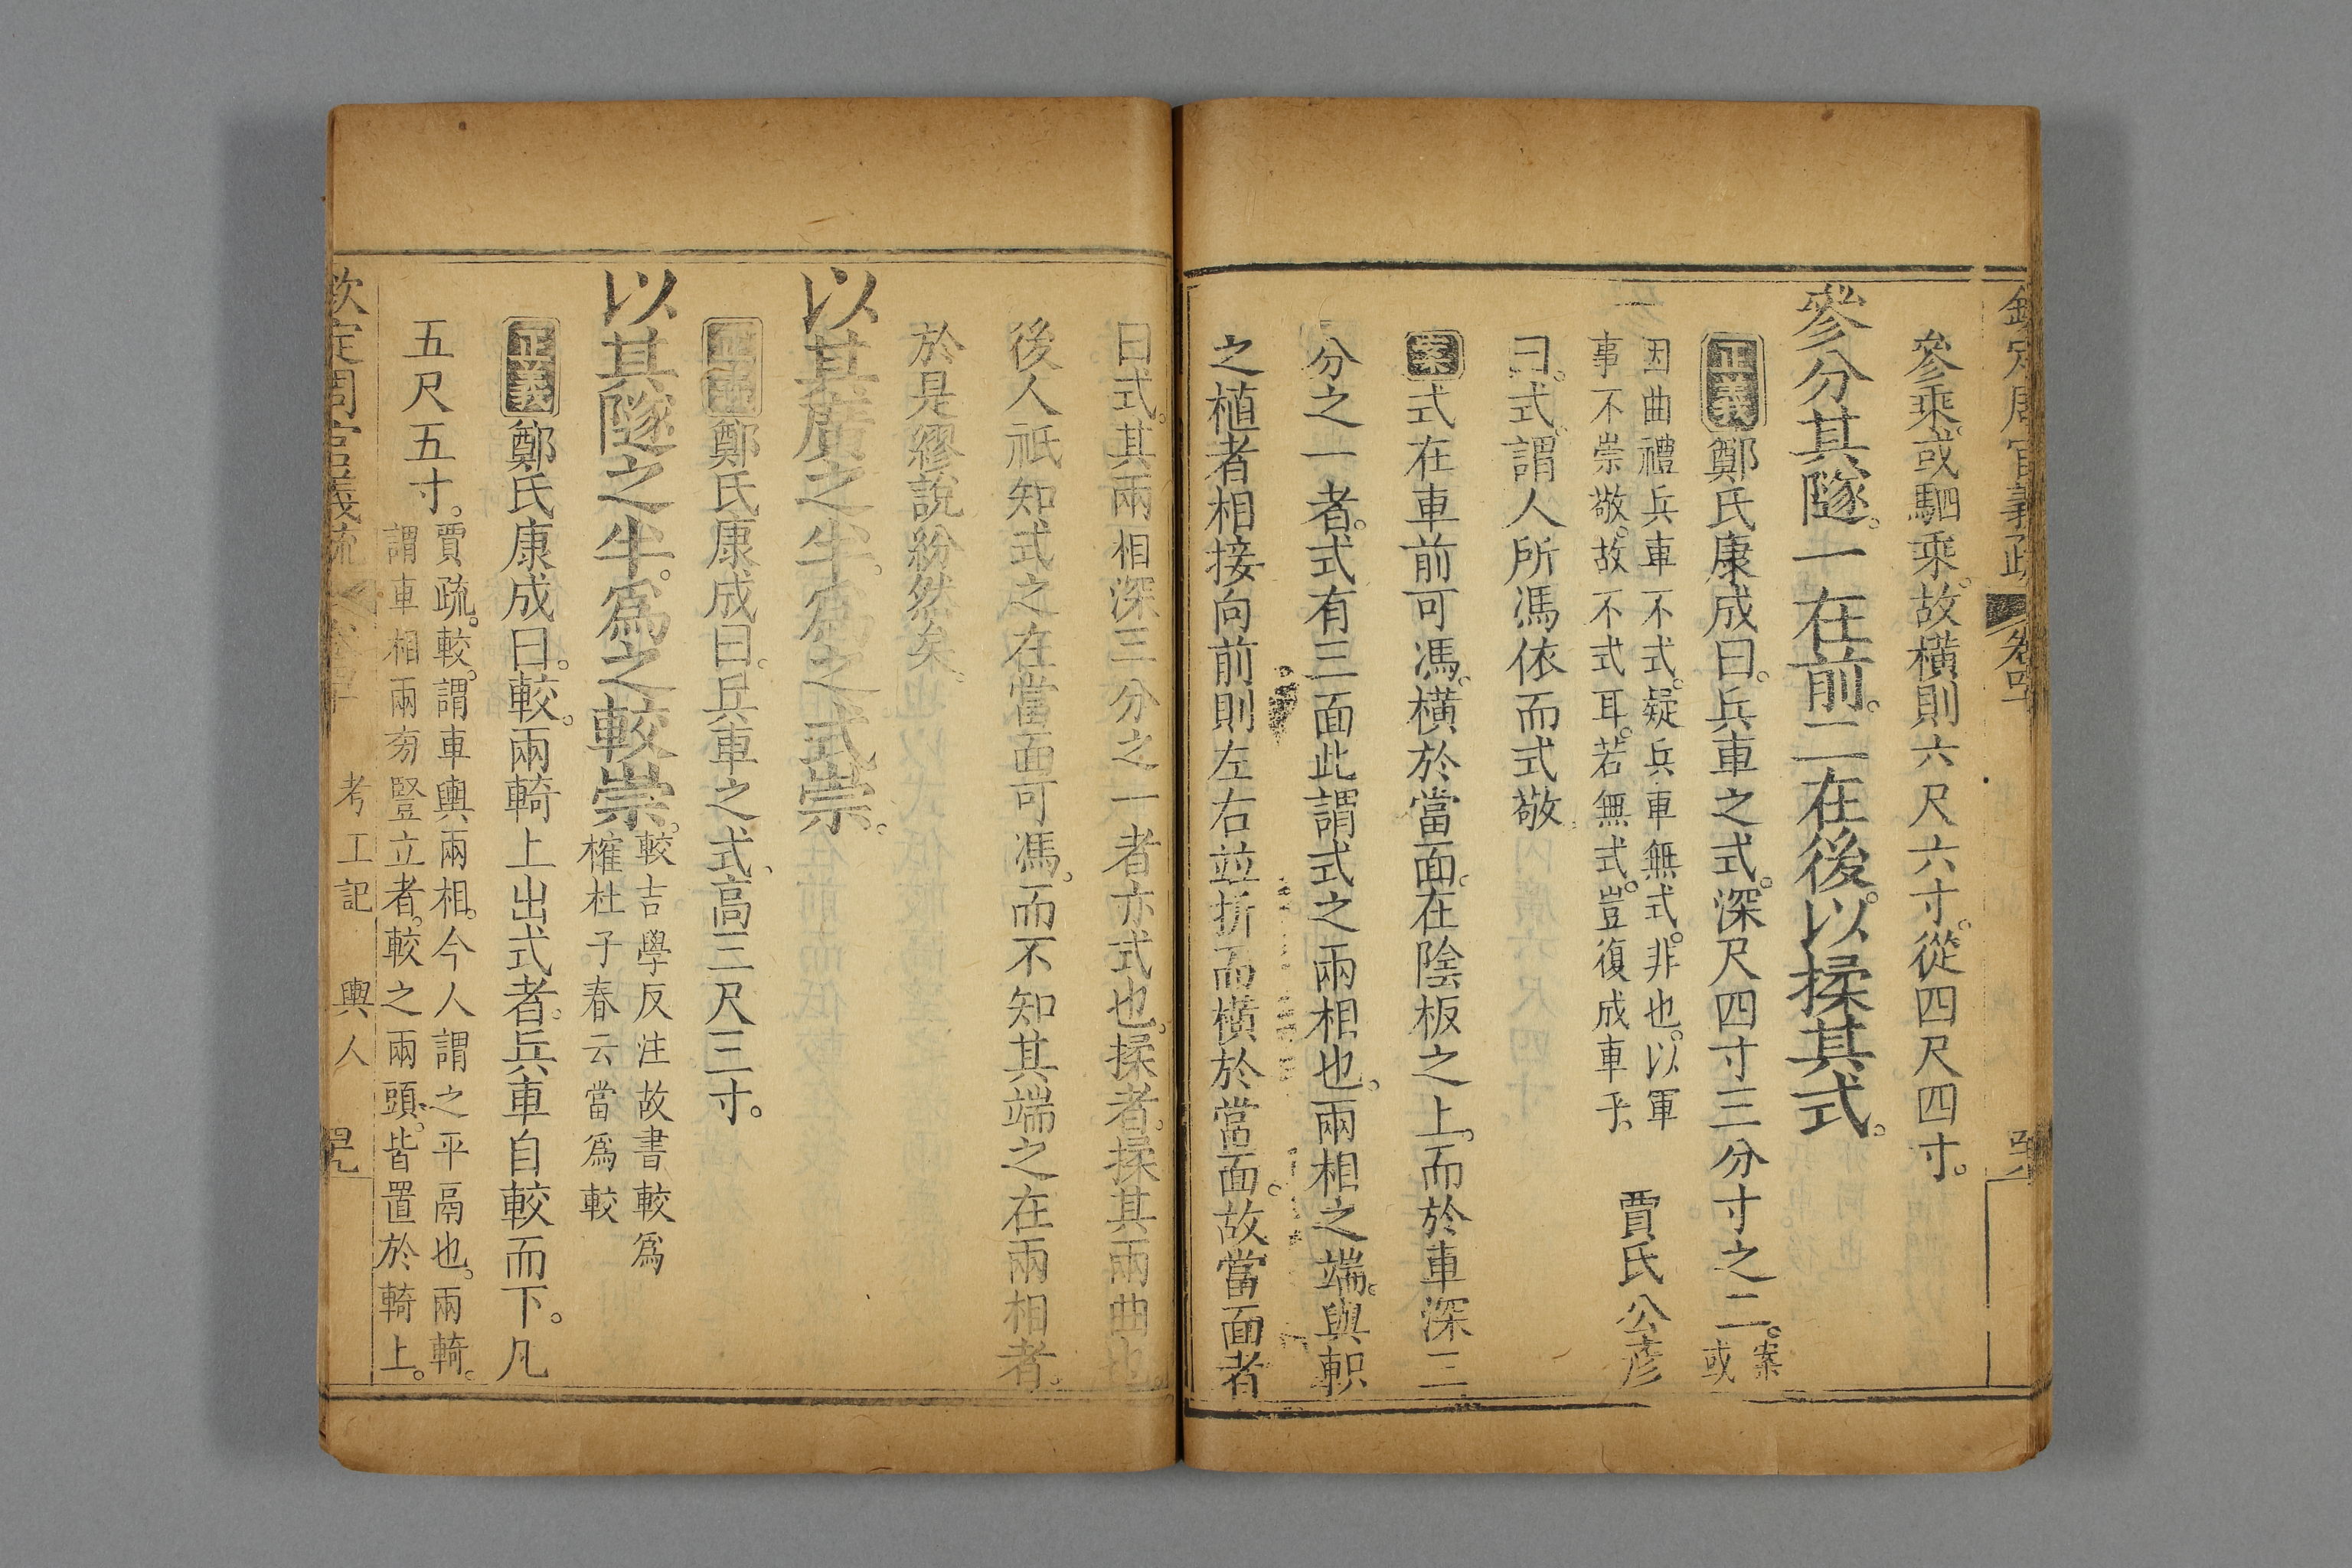 參乘或駟乘。故橫則六尺六寸。從四尺四寸。
參分其隧。一在前。二在後。以揉其式。
正義鄭氏康成曰。兵車之式。深尺四寸三分寸之二。案或
因曲禮兵車不式。疑兵車無式。非也。以軍
事不崇敬。故不式耳。若無式。豈復成車乎。
賈氏公彥
曰。式。謂人所馮依而式敬
案式在車前可馮。橫於當面。在陰板之上。而於車深三
分之一者。式有三面此謂式之兩相也。兩相之端。與軹
之植者相接向前則左右並折而橫於當面。故當面者
曰式。其兩相深三分之一者亦式也。揉者。揉其兩曲也。
後人祇知式之在當面可馮。而不知其端之在兩相者。
於是繆說紛然矣。
以其廣之半。爲之式崇。
正義鄭氏康成曰。兵車之式、高三尺三寸。
以其隧之半。爲之較崇。
較吉學反注故書較爲
榷杜子春云當爲較
正義鄭氏康成曰。較。兩輢上出式者。兵車自較而下。凡
五尺五寸。
賈疏。較。謂車輿兩相。今人謂之平鬲也。兩輢。
謂車相兩旁豎立者。較之兩頭。皆置於輢上。
考工記 輿人